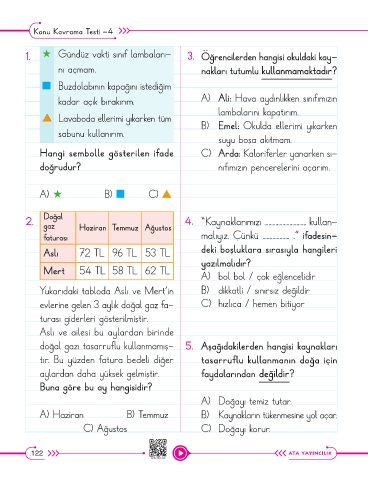 Konu Kavrama Testi -4
1. ★ Gündüz vakti sınıf lambaları-
nı açmam.
■ Buzdolabının kapağını istediğim
kadar açık bırakırım.
▲ Lavaboda ellerimi yıkarken tüm
sabunu kullanırım.
Hangi sembolle gösterilen ifade
doğrudur?
A) ★ B) ■ C) ▲
2.
Doğal gaz faturası Haziran Temmuz Ağustos
Aslı 72 TL 96 TL 53 TL
Mert 54 TL 58 TL 62 TL
Yukarıdaki tabloda Aslı ve Mert'in
evlerine gelen 3 aylık doğal gaz fa-
turası giderleri gösterilmiştir.
Aslı ve ailesi bu aylardan birinde
doğal gazı tasarruflu kullanmamış-
tır. Bu yüzden fatura bedeli diğer
aylardan daha yüksek gelmiştir.
Buna göre bu ay hangisidir?
A) Haziran B) Temmuz
C) Ağustos
3. Öğrencilerden hangisi okuldaki kay-
nakları tutumlu kullanmamaktadır?
A) Ali: Hava aydınlıkken sınıfımızın
lambalarını kapatırım.
B) Emel: Okulda ellerimi yıkarken
suyu boşa akıtmam.
C) Arda: Kaloriferler yanarken sı-
nıfımızın pencerelerini açarım.
4. "Kaynaklarımızı ............... kullan-
malıyız. Çünkü ............... ." ifadesin-
deki boşluklara sırasıyla hangileri
yazılmalıdır?
A) bol bol / çok eğlencelidir
B) dikkatli / sınırsız değildir
C) hızlıca / hemen bitiyor
5. Aşağıdakilerden hangisi kaynakları
tasarruflu kullanmanın doğa için
faydalarından değildir?
A) Doğayı temiz tutar.
B) Kaynakların tükenmesine yol açar.
C) Doğayı korur.
122
ATA YAYINCILIK